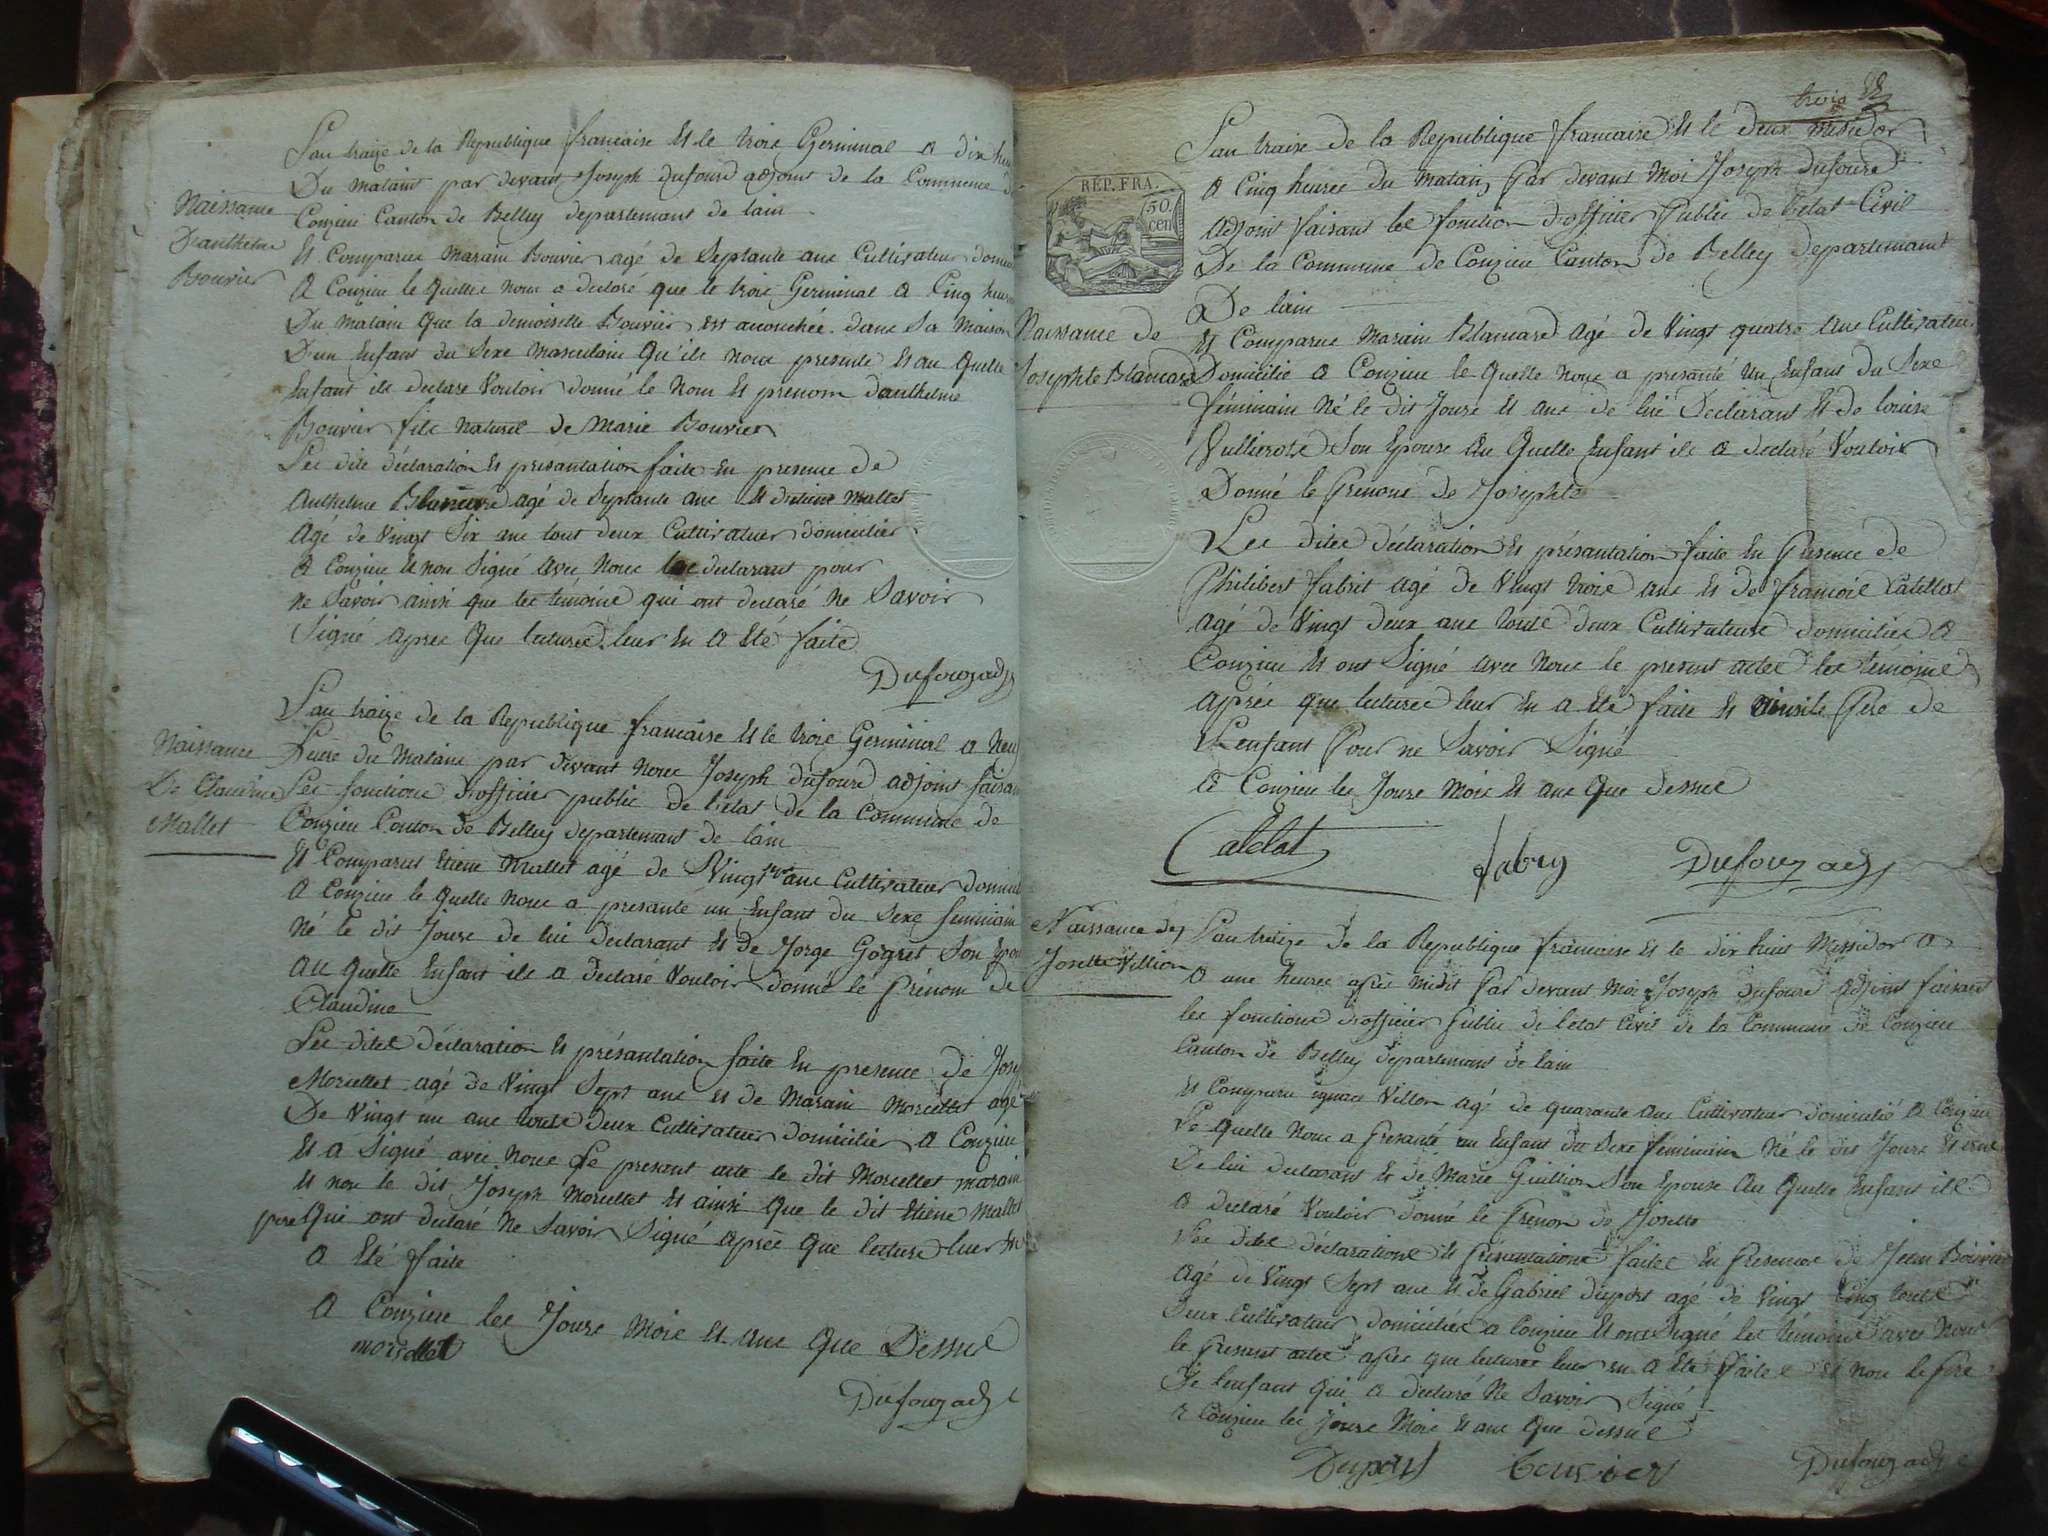 Naissance
D'anthelme
Bouvier
Lan traize de la Republique francaise et le trois Germinal a dix heu
Du matain par devant Joseph dufourd adjoint de la Commune de
Conzieu Canton de Belley departemant de lain
Et Comparue Marain Bouvier agé de Septante ans Cultivateur domici
A Conzieu le quelle nous a declaré que le trois Germinal a Cinq heure
Du matain que la demoiselle Bouvier est accouchée dans sa maison
D'un Enfant du Sexe Masculain qu'ils nous presente et au quelle
Enfant ils declare Vouloir donné le nom et prenom danthelme
Bouvier fils naturel de Marie Bouvier
Les dite déclaration et presantation faite en presence de
Anthelme agé de Septante ans et Etiene Mallet
Agé de Vingt Six ans tout deux Cultivatuer domicilier
A Conzieu et non Signé avec nous le declarant pour
ne Savoir ainsi que les témoins qui ont declaré ne Savoir
Signé apres que lecturee leur en a eté faite
Dufour adj
Naissance
De Claudine
Mallet
Lan traize de la Republique francaise et le trois Germinal a neuf
heure du Matain par devant nous Joseph dufourd adjoint faisan
Les fonctions d'officier public de l'etat de la Commune de
Conzieu Canton de Belley departemant de lain
Et Comparus Etiene Mallet agé de Vingt ans Cultivateur domici
A Conzieu le quelle nous a presanté un Enfant du Sexe feminain
Né le dit Jours de lui declarant et de Jorge Gogret Son Epou
Au quelle Enfant ils a declaré Vouloir donné le Prénom de
Claudine
Les dites déclaration et présantation faite en presence de Jose
Morcellet agé de Vingt Sept ans et de Marain Morcellet agé
De Vingt un ans touts deux Cultivatuer domicilier A Conzieu
Et A Signé avec nous Le presant acte le dit Morcellet marain
Et non le dit Joseph Morcellet et ainsi que le dit Etiene Mallet
pere Qui ont declaré ne Savoir Signé aprés que lecture luer en
A Eté faite
A Conzieu les Jours Mois et ans que Dessus
morcellet
Dufour adj
trois
RÉP. FRA.
50
cen
Lan traize de la Republique francaise et le deux Messidor
A Cinq heures du Matain par devant Moi Joseph dufourd
Adjoint faisant les fonction d'officier Public de l'etat Civil
De la Commune de Conzieu Canton de Belley departemant
De lain
Naissance de
Josephte Blancard
Et Comparue Marain Blancard agé de Vingt quatre ans Cultivateur
Domicilié A Conzieu le quelle nous a presanté un Enfant du Sexe
féminain Né le dit Jours et ans de lui Declarant et de louise
Vullierose Son Epouse au quelle Enfant ils a declaré Vouloir
Donné le Prenoms de Josephte
Les dites déclaration et présantation faite en Presence de
Philibert fabrit agé de Vingt trois ans et de francois Catellat
agé de Vingt deux ans touts deux Cultivateurs domiciliés A
Conzieu et ont Signé avec nous le present actes les témoins
aprés que lecturee leur en a Eté faite et Pere de
L'enfant Pour ne Savoir Signé
A Conzieu les Jours Mois et ans que dessus
Catelat
fabry
Dufour adj
Naissance de
Josette Villion
Lan traize de la Republique francaise et le dix huit Messidor A
A une heures après midis par devant moi Joseph dufourd adjoint faisant
les fonctions d'officier Public de l'etat Civil de la Commune de Conzieu
Canton de Belley departemant de lain
Et Comparu ignace Villon agé de quarante ans Cultivateur domicilié A Conzieu
Le quelle nous a Presanté un Enfant du Sexe feminain Né le dit Jours et ans
De lui declarant et de Marie Guillion Son Epouse Au quelle Enfant ils
A declaré Vouloir donné le Prénom de Josette
Les dites déclarations et Présantations faites en Présence de Jean Bouvier
Agé de Vingt Sept ans et de Gabriel duport agé de Vingt Cinq touts
Deux Cultivateur domiciliés a Conzieu et ont Signé les témoins avec nous
le Present actes aprés que lecturee leur en a Eté faite et non le Pere
De l'enfant qui a declaré ne Savoir Signé
A Conzieu les Jours Mois et ans que dessus
Duport
bouvier
Dufour adj